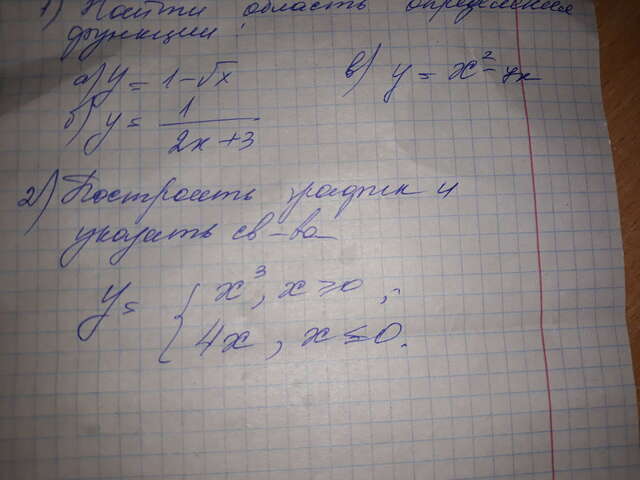 1) Найти область определения
функции:
а) y = 1-√x
в) y = x² - 4x
б) y = 1/(2x+3)
2) Построить график и
указать св-ва
y = { x³, x ≥ 0 ;
4x, x ≤ 0.